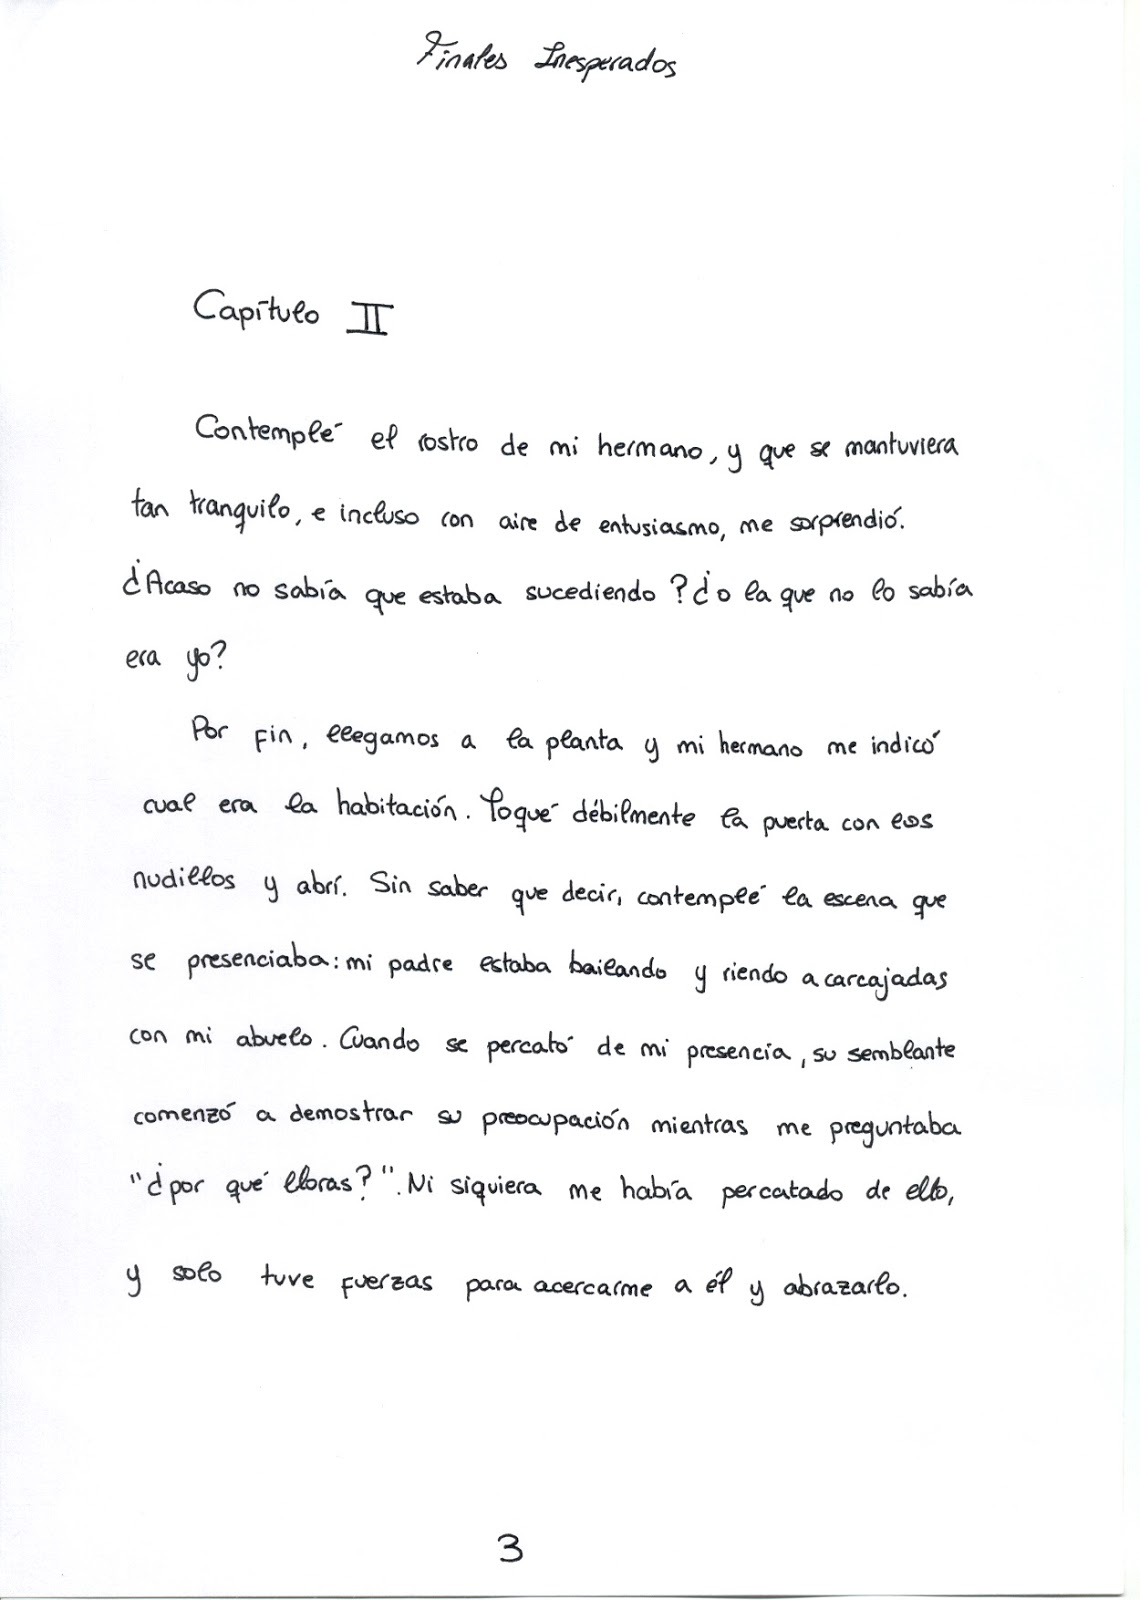 Finales Inesperados
Capítulo II
Contemplé el rostro de mi hermano, y que se mantuviera
tan tranquilo, e incluso con aire de entusiasmo, me sorprendió.
¿Acaso no sabía que estaba sucediendo? ¿o la que no lo sabía
era yo?
Por fin, llegamos a la planta y mi hermano me indicó
cual era la habitación. Toqué débilmente la puerta con los
nudillos y abrí. Sin saber que decir, contemplé la escena que
se presenciaba: mi padre estaba bailando y riendo a carcajadas
con mi abuelo. Cuando se percató de mi presencia, su semblante
comenzó a demostrar su preocupación mientras me preguntaba
"¿por qué lloras?". Ni siquiera me había percatado de ello,
y solo tuve fuerzas para acercarme a él y abrazarlo.
3